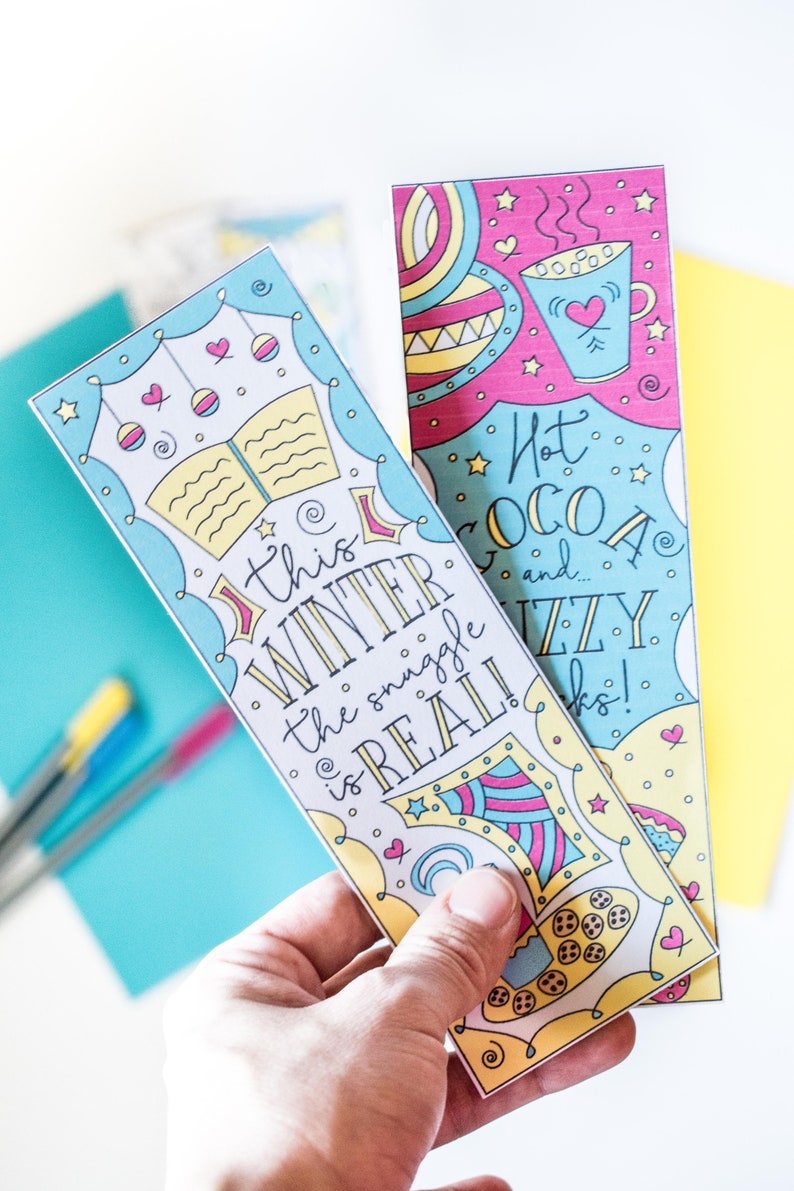 this
WINTER
the snuggle
is REAL!
Hot
COCOA
and...